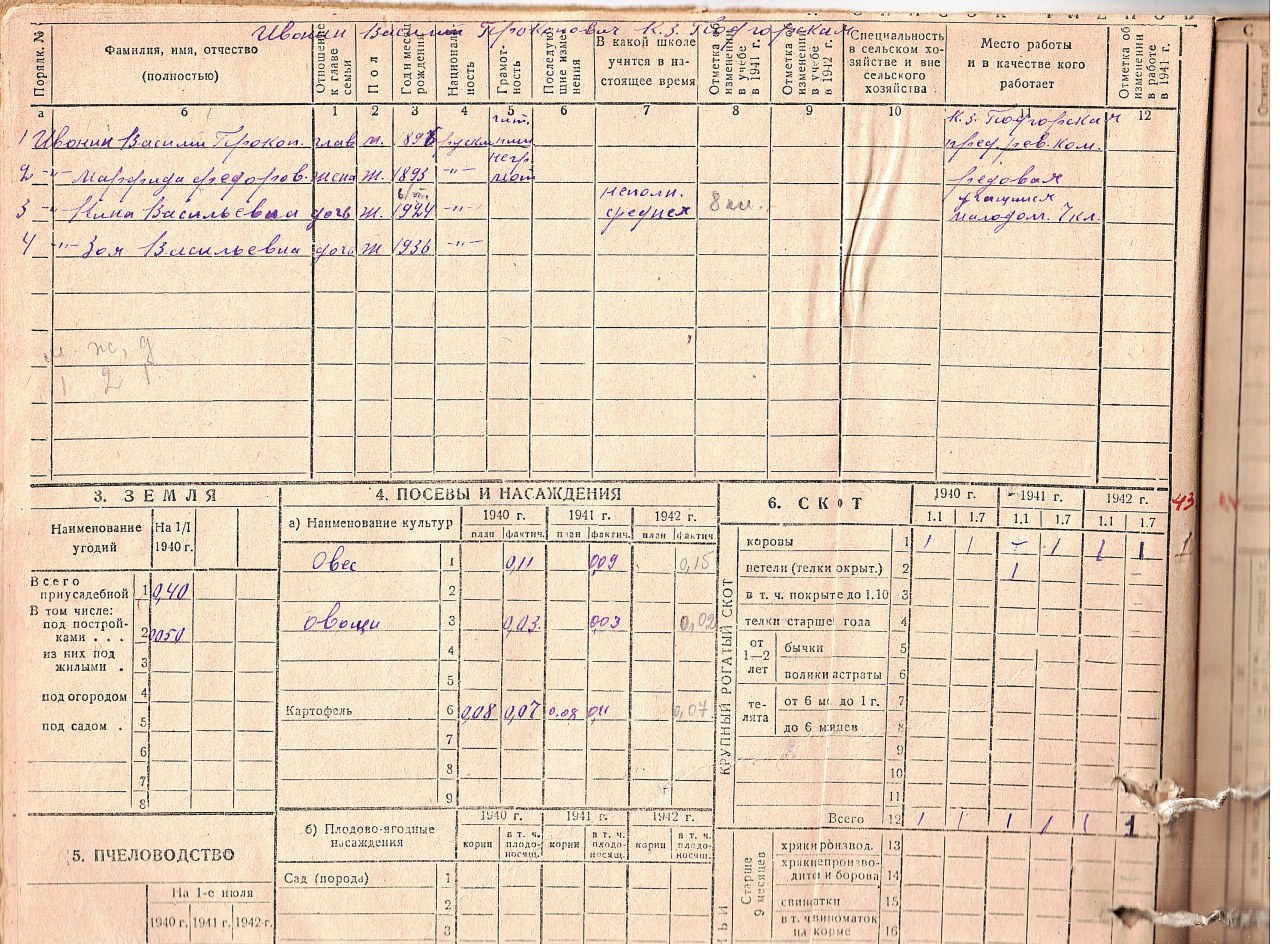 Ивонин Василий Прокопович К.З. Подгорская
Порядк. №
Фамилия, имя, отчество
(полностью)
Отношение к главе семьи
Пол
Год и месяц рождения
Националь-ность
Грамот-ность
Последую-щие изме-нения
В какой школе учится в на-стоящее время
Отметка об изменении в учебе в 1941 г.
Отметка об изменении в учебе в 1942 г.
Специальность в сельском хо-зяйстве и вне сельского хозяйства
Место работы и в качестве кого работает
Отметка об изменении в работе в 1941 г.
а б 1 2 3 4 5 6 7 8 9 10 11 12
1 Ивонин Василий Прокоп. глав м. русский К.З. Подгорская
пред. рев. ком.
2 -"- Федоров. жена ж. 1893 -"- негр. рядовая
3 -"- Нина Васильевна дочь ж. 1924 -"- неполн. средняя 8 кл. учащаяся 7 кл.
4 -"- Зоя Васильевна дочь ж 1936 -"-
м ж, д
1 2 1
3. ЗЕМЛЯ
Наименование угодий
На 1/I 1940 г.
Всего приусадебной 1 0,40
В том числе:
под построй-ками . . . 2 0,050
из них под жилыми . 3
под огородом 4
под садом . 5
6
7
8
4. ПОСЕВЫ И НАСАЖДЕНИЯ
а) Наименование культур
1940 г. 1941 г. 1942 г.
план фактич. план фактич. план фактич.
Овес 1 0,11 0,09 0,15
2
Овощи 3 0,03 0,03 0,02
4
5
Картофель 6 0,08 0,07 0,08 0,11 0,07
7
8
9
б) Плодово-ягодные насаждения
1940 г. 1941 г. 1942 г.
корни в т. ч. плодо-носящ. корни в т. ч. плодо-носящ. корни в т. ч. плодо-носящ.
Сад (порода) 1
2
3
5. ПЧЕЛОВОДСТВО
На 1-е июля
1940 г. 1941 г. 1942 г.
6. СКОТ
1940 г. 1941 г. 1942 г. 43
1.1 1.7 1.1 1.7 1.1 1.7
КРУПНЫЙ РОГАТЫЙ СКОТ
коровы 1 1 1 - 1 1 1 1
нетели (телки покрыт.) 2 1
в т. ч. покрыте до 1.10 3
телки старше года 4
от 1—2 лет
бычки 5
волики кастраты 6
те-лята
от 6 мс до 1 г. 7
до 6 мцев 8
9
10
11
Всего 12 1 1 1 1 1 1
Старше 9 месяцев
хряки произвол. 13
хряки непроизво-дители и борова 14
свиматки 15
в т. ч. свиноматок на корме 16